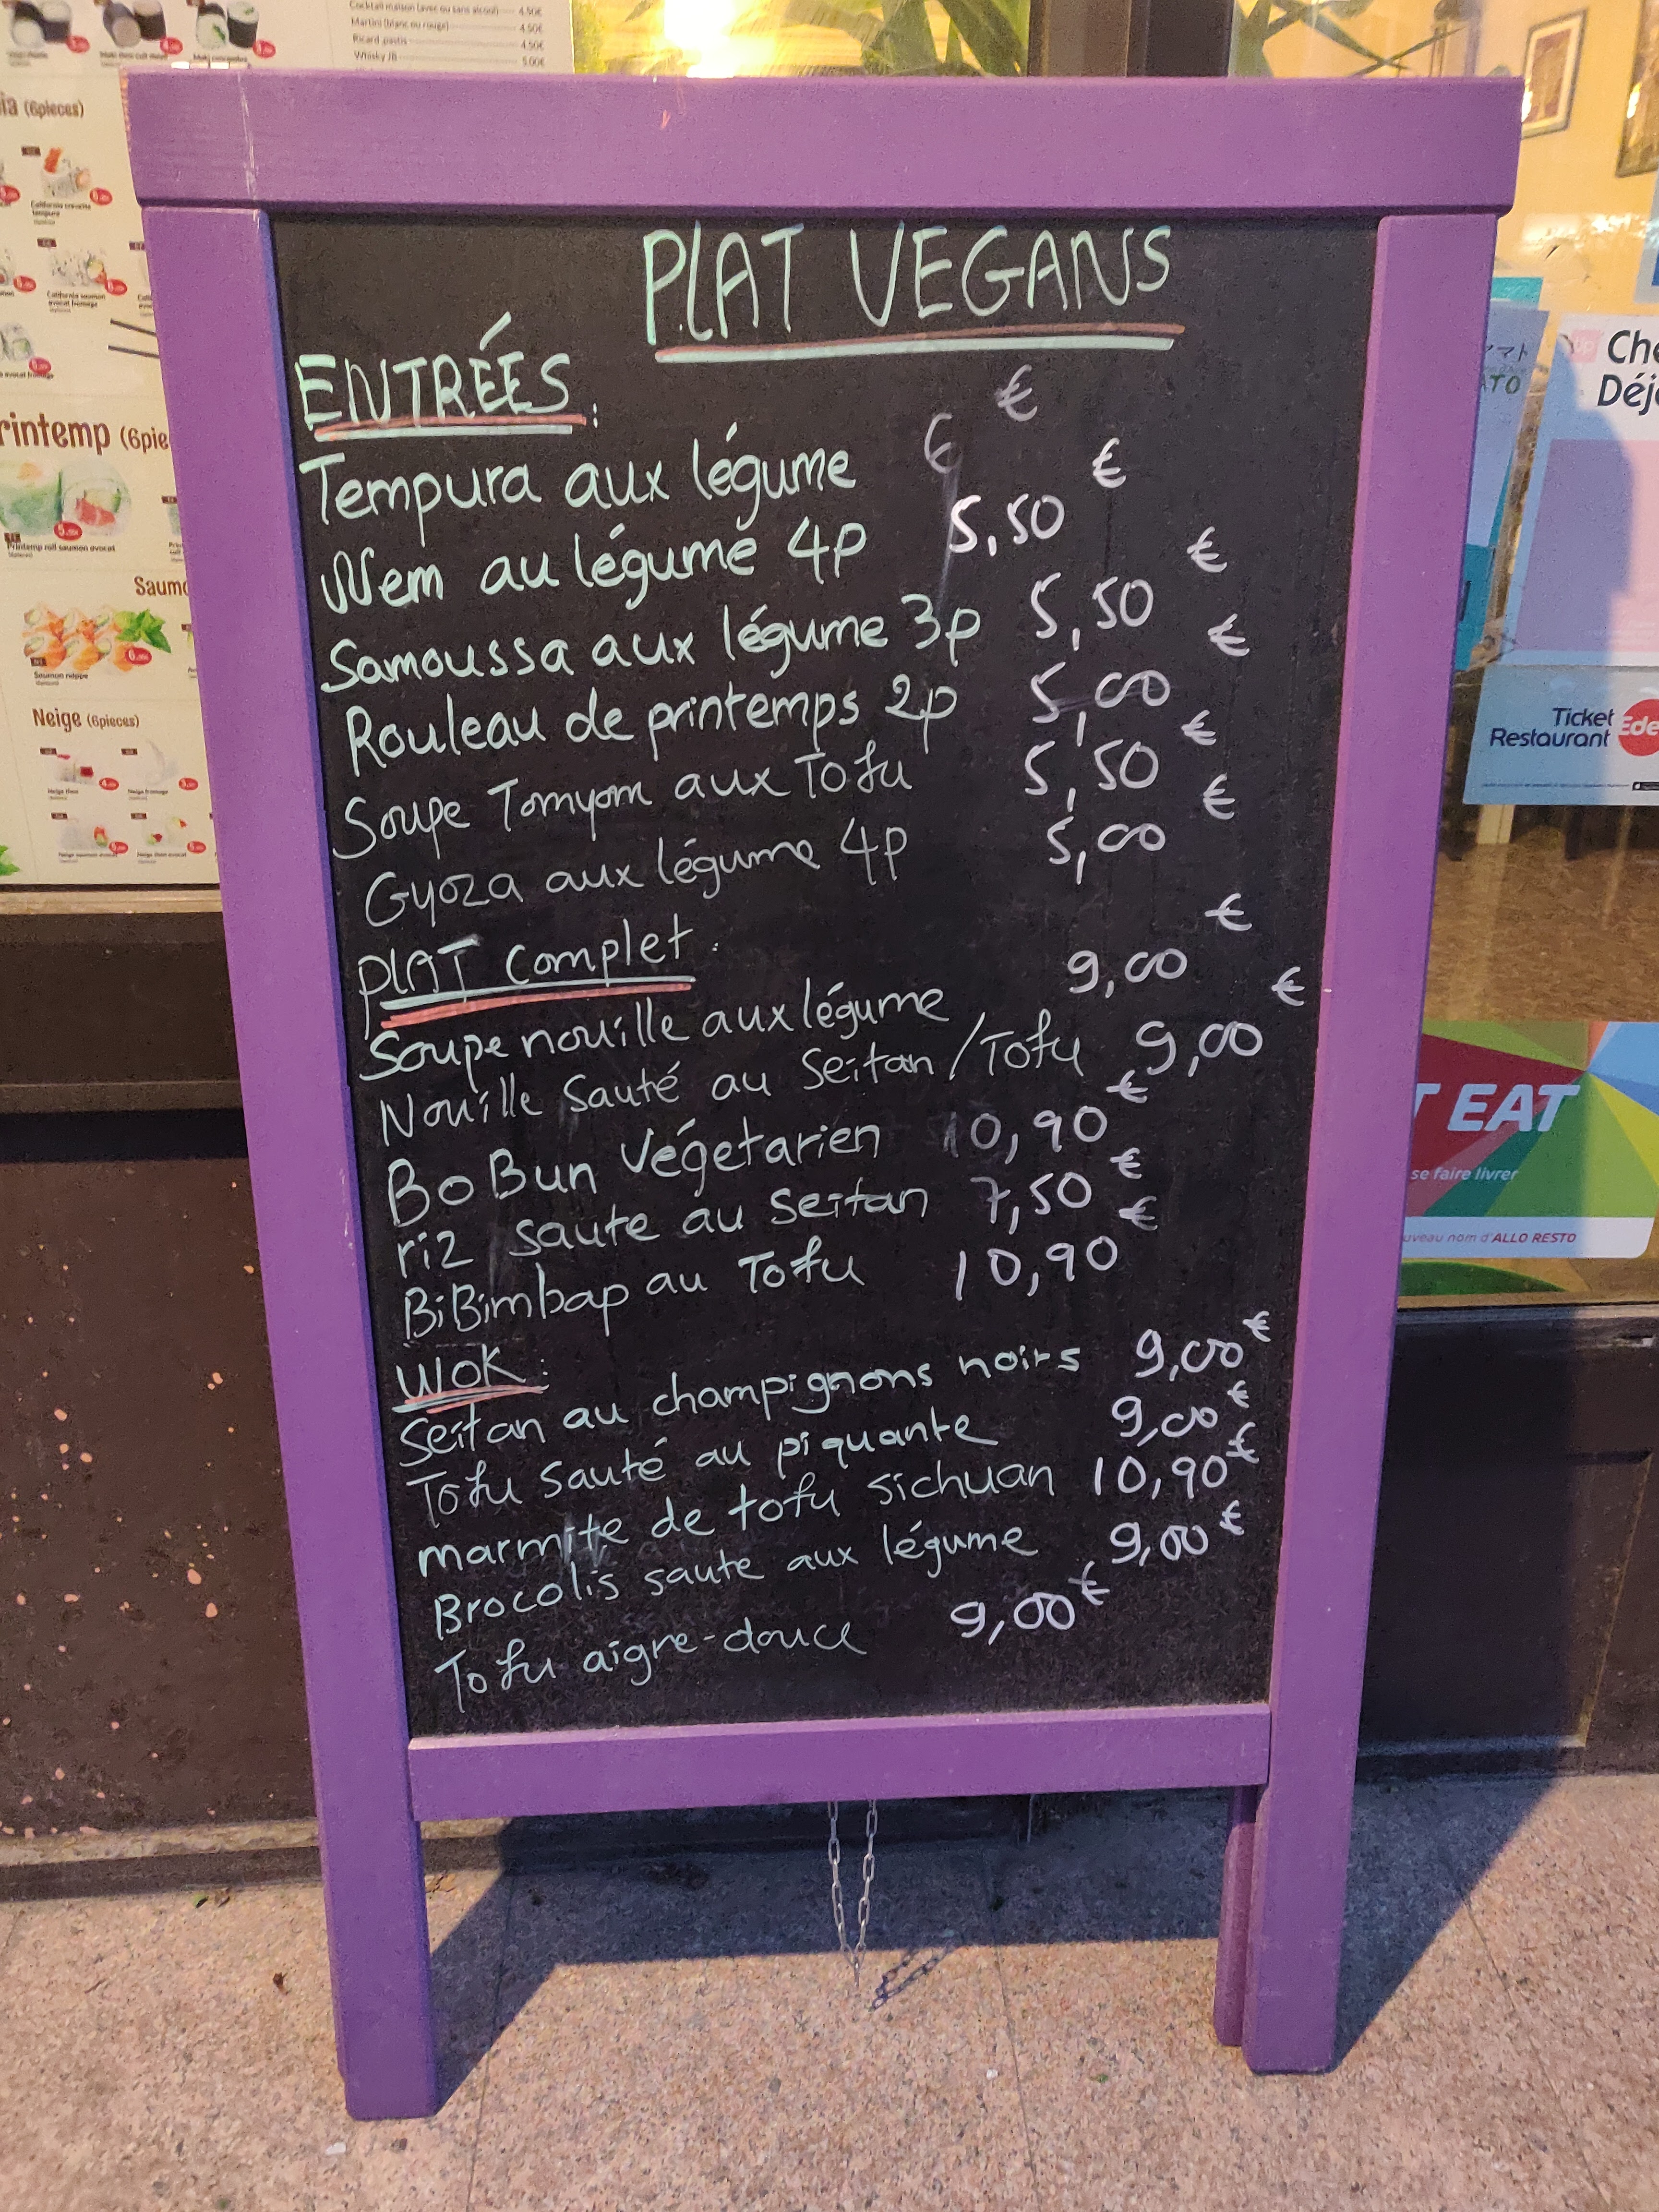 Cocktail maison (avec ou sans alcool) 4.50€
Martini (blanc ou rouge) 4.50€
Ricard, pastis 4.50€
Whisky JB 5.00€
(6pieces)
California saumon
avocat fromage
rintemp (6pie
Printemp roll saumon avocat
Saumo
Neige (6pieces)
PLAT VEGANS
ENTRÉES:
Tempura aux légume 6 €
Nem au légume 4p 5,50 €
Samoussa aux légume 3p 5,50 €
Rouleau de printemps 2p 5,00 €
Soupe Tomyom aux Tofu 5,50 €
Gyoza aux légume 4p 5,00 €
PLAT Complet:
Soupe nouille aux légume 9,00 €
Nouille Sauté au Seitan/Tofu 9,00 €
BoBun Végetarien 10,90 €
riz saute au seitan 7,50 €
BiBimbap au Tofu 10,90 €
WOK:
Seitan au champignons noirs 9,00€
Tofu Sauté au piquante 9,00€
marmite de tofu sichuan 10,90€
Brocolis saute aux légume 9,00€
Tofu aigre-douce 9,00€
Che
Déjà
Ticket
Restaurant
Ede
T EAT
se faire livrer
uveau nom d'ALLO RESTO